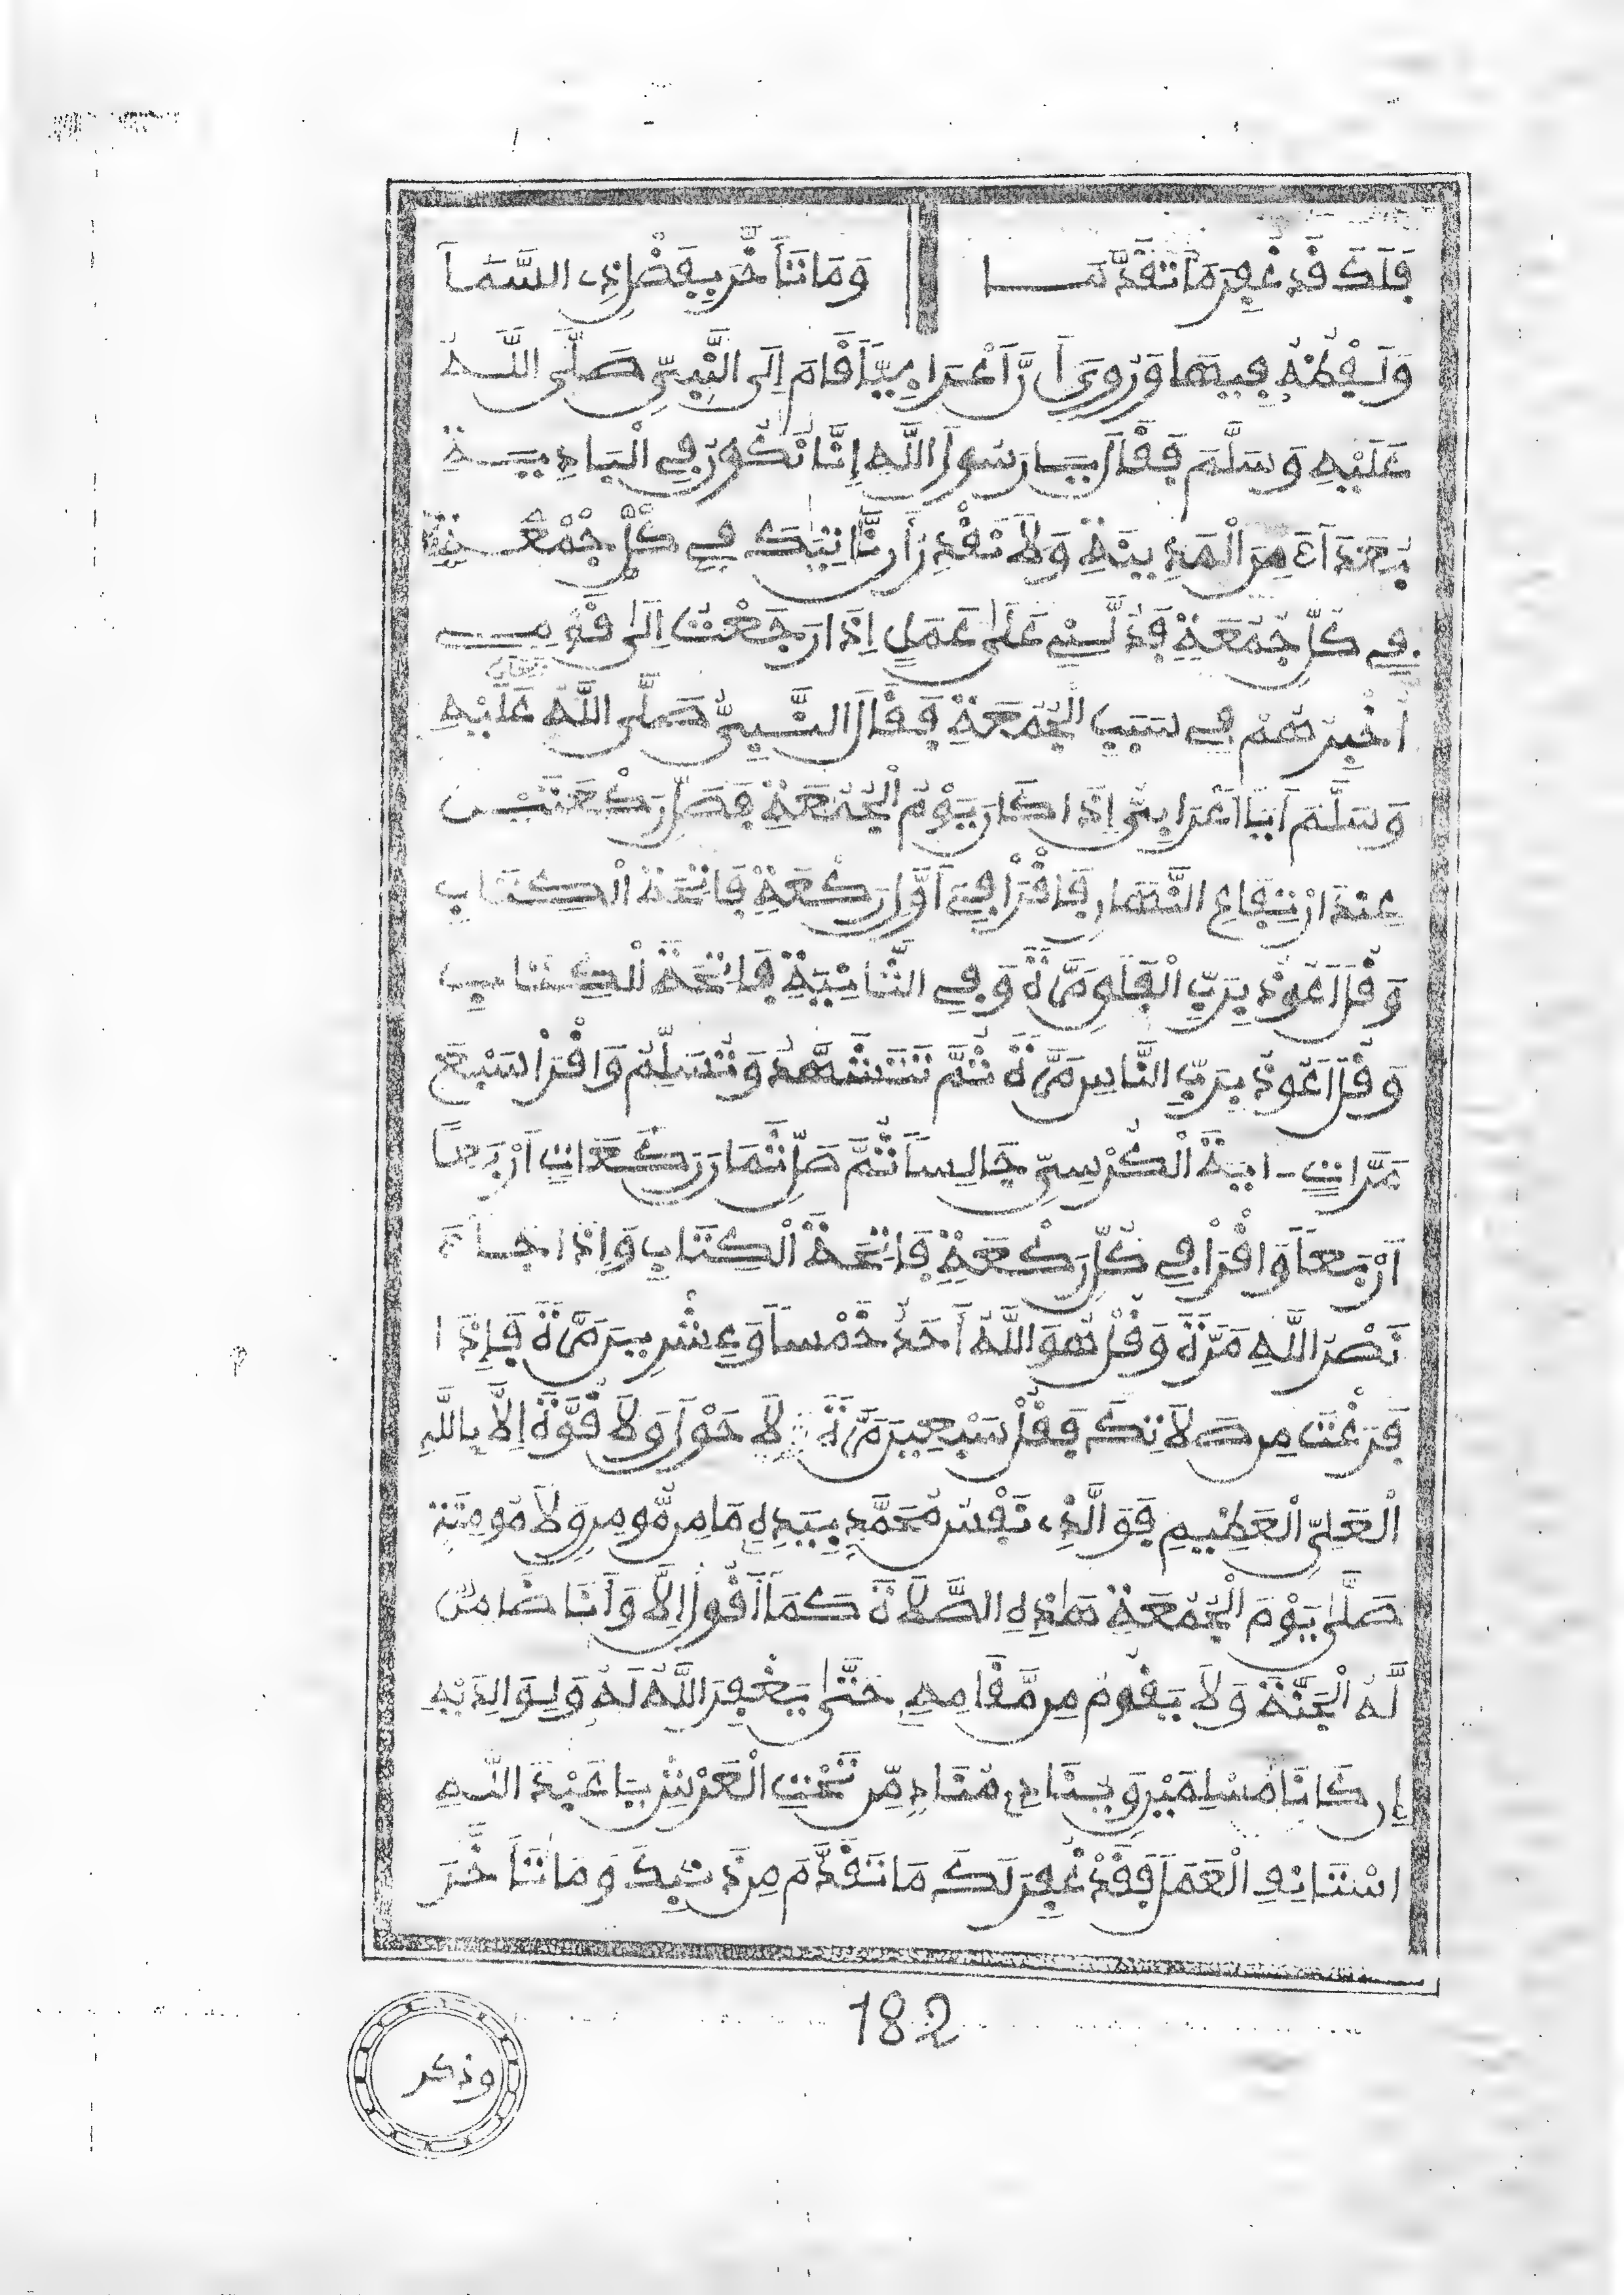 فَلَكَ قَدْ غُفِرَ مَا تَقَدَّمَا وَمَا تَأَخَّرَ بِفَضْلِ ذِي السَّمَا
وَلَفْظُهُ فِيهَا وَرُوِيَ أَنَّ أَعْرَابِيّاً قَامَ إِلَى النَّبِيِّ صَلَّى اللَّهُ
عَلَيْهِ وَسَلَّمَ فَقَالَ يَا رَسُولَ اللَّهِ إِنَّا نَكُونُ فِي الْبَادِيَةِ
بُعَدَاءَ مِنَ الْمَدِينَةِ وَلَا نَقْدِرُ أَن نَّأْتِيَكَ فِي كُلِّ جُمُعَةٍ
فِي كُلِّ جُمُعَةٍ فَدُلَّنِي عَلَى عَمَلٍ إِذَا رَجَعْتُ إِلَى قَوْمِي
أُخْبِرُهُمْ فِي سَبَبِ الْجُمُعَةِ فَقَالَ النَّبِيُّ صَلَّى اللَّهُ تعالى عَلَيْهِ
وَسَلَّمَ أَيَا أَعْرَابِيُّ إِذَا كَانَ يَوْمُ الْجُمُعَةِ فَصَلِّ رَكْعَتَيْنِ
عِنْدَ ارْتِفَاعِ النَّهَارِ فَاقْرَأْ فِي أَوَّلِ رَكْعَةٍ فَاتِحَةَ الْكِتَابِ
وَقُلْ أَعُوذُ بِرَبِّ الْفَلَقِ مَرَّةً وَفِي الثَّانِيَةِ فَاتِحَةَ الْكِتَابِ
وَقُلْ أَعُوذُ بِرَبِّ النَّاسِ مَرَّةً ثُمَّ تَتَشَهَّدُ وَتُسَلِّمُ وَاقْرَأْ سَبْعَ
مَرَّاتٍ ءَايَةَ الْكُرْسِيِّ جَالِساً ثُمَّ صَلِّ ثَمَانَ رَكَعَاتٍ أَرْبَعاً
أَرْبَعاً وَاقْرَأْ فِي كُلِّ رَكْعَةٍ فَاتِحَةَ الْكِتَابِ وَإِذَا جَاءَ
نَصْرُ اللَّهِ مَرَّةً وَقُلْ هُوَ اللَّهُ أَحَدٌ خَمْساً وَعِشْرِينَ مَرَّةً فَإِذَا
فَرَغْتَ مِن صَلَاتِكَ فَقُلْ سَبْعِينَ مَرَّةً لَا حَوْلَ وَلَا قُوَّةَ إِلَّا بِاللَّهِ
الْعَلِيِّ الْعَظِيمِ فَوَالَّذِي نَفْسُ مُحَمَّدٍ بِيَدِهِ مَا مِن مُّومِنٍ وَلَا مُومِنَةٍ
صَلَّى يَوْمَ الْجُمُعَةِ هَذِهِ الصَّلَاةَ كَمَا أَقُولُ إِلَّا وَأَنَا ضَامِنٌ
لَّهُ الْجَنَّةَ وَلَا يَقُومُ مِن مَّقَامِهِ حَتَّى يَغْفِرَ اللَّهُ لَهُ وَلِوَالِدَيْهِ
إِن كَانَا مُسْلِمَيْنِ وَيُنَادِي مُنَادٍ مِّن تَحْتِ الْعَرْشِ يَا عَبْدَ اللَّهِ
اسْتَانِفِ الْعَمَلَ فَقَدْ غُفِرَ لَكَ مَا تَقَدَّمَ مِن ذَنبِكَ وَمَا تَأَخَّرَ
182
وذكر